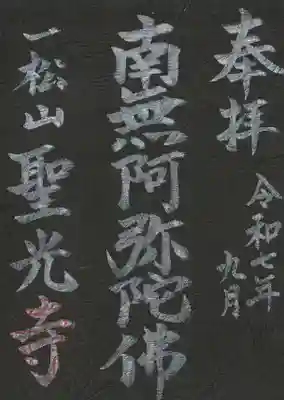 奉拝
令和七年
九月
南無阿弥陀佛
一松山
聖光寺